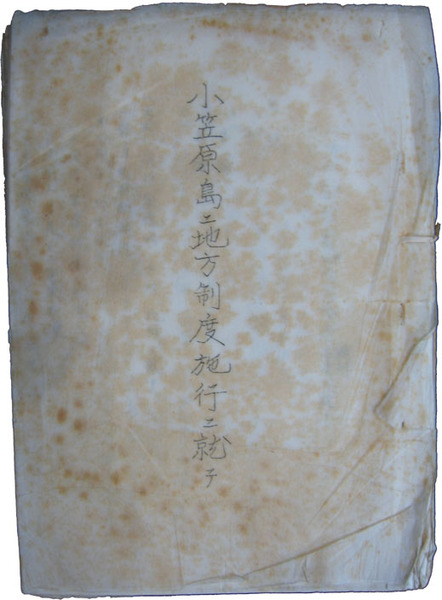 小笠原島ニ地方制度施行ニ就テ